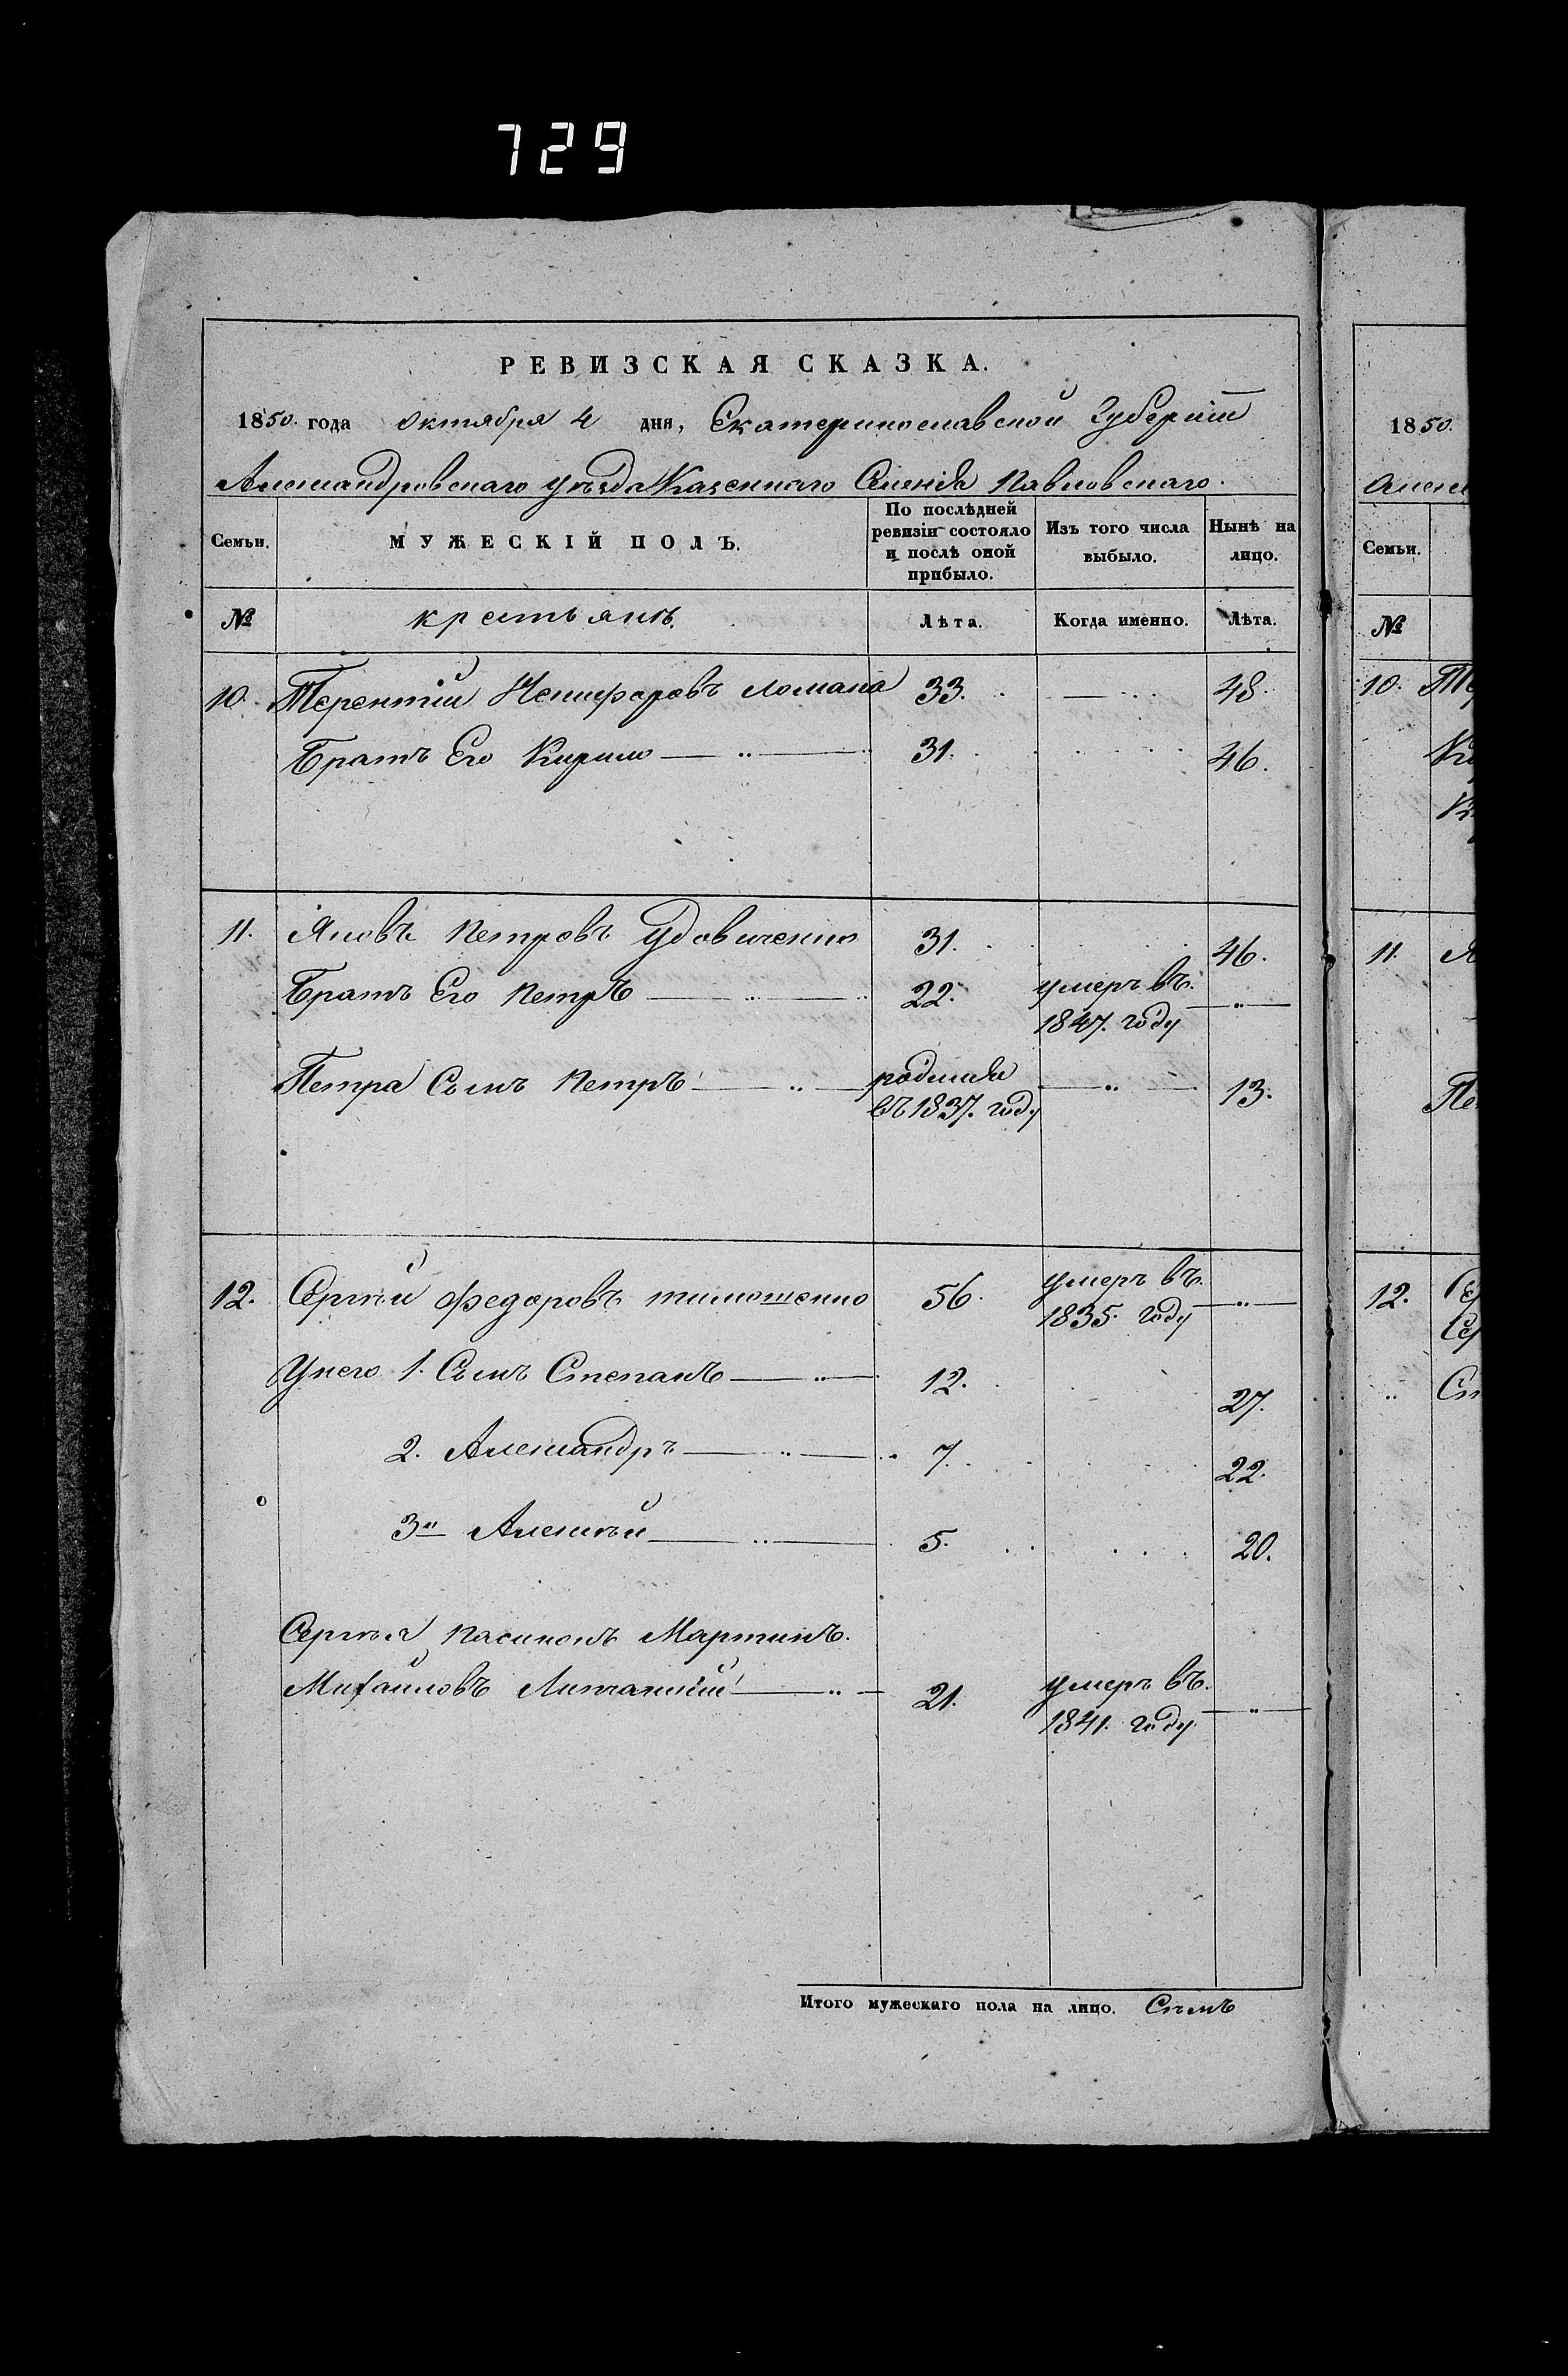 729
РЕВИЗСКАЯ СКАЗКА.
1850. года октября 4 дня, Екатеринославской Губерніи
Александровскаго уѣзда Казеннаго Селенія Павловскаго.
Семьи. МУЖЕСКІЙ ПОЛЪ. По послѣдней ревизіи состояло и послѣ оной прибыло. Изъ того числа выбыло. Нынѣ на лицо.
№ крестьянъ. Лѣта. Когда именно. Лѣта.
10. Терентій Никифоровъ Ломака 33. — 48.
Братъ Его Кирило — „ — 31. 46.
11. Яковъ Петровъ Удовиченко 31. 46.
Братъ Его Петръ — „ — 22. умеръ въ 1847. году — „ —
Петра Сынъ Петръ — „ — родился въ 1837. году — „ — 13.
12. Сергѣй Федоровъ тимошенко 56. умеръ въ 1835. году — „ —
У него 1. Сынъ Степанъ — „ — 12. 27.
2. Александръ — „ — 7. 22.
3й Алексѣй — „ — 5. 20.
Сергѣя пасинокъ Мартинъ.
Михайловъ 21. умеръ въ 1841. году — „ —
Итого мужескаго пола на лицо. Семь
1850.
Семьи.
№
10.
11.
12.